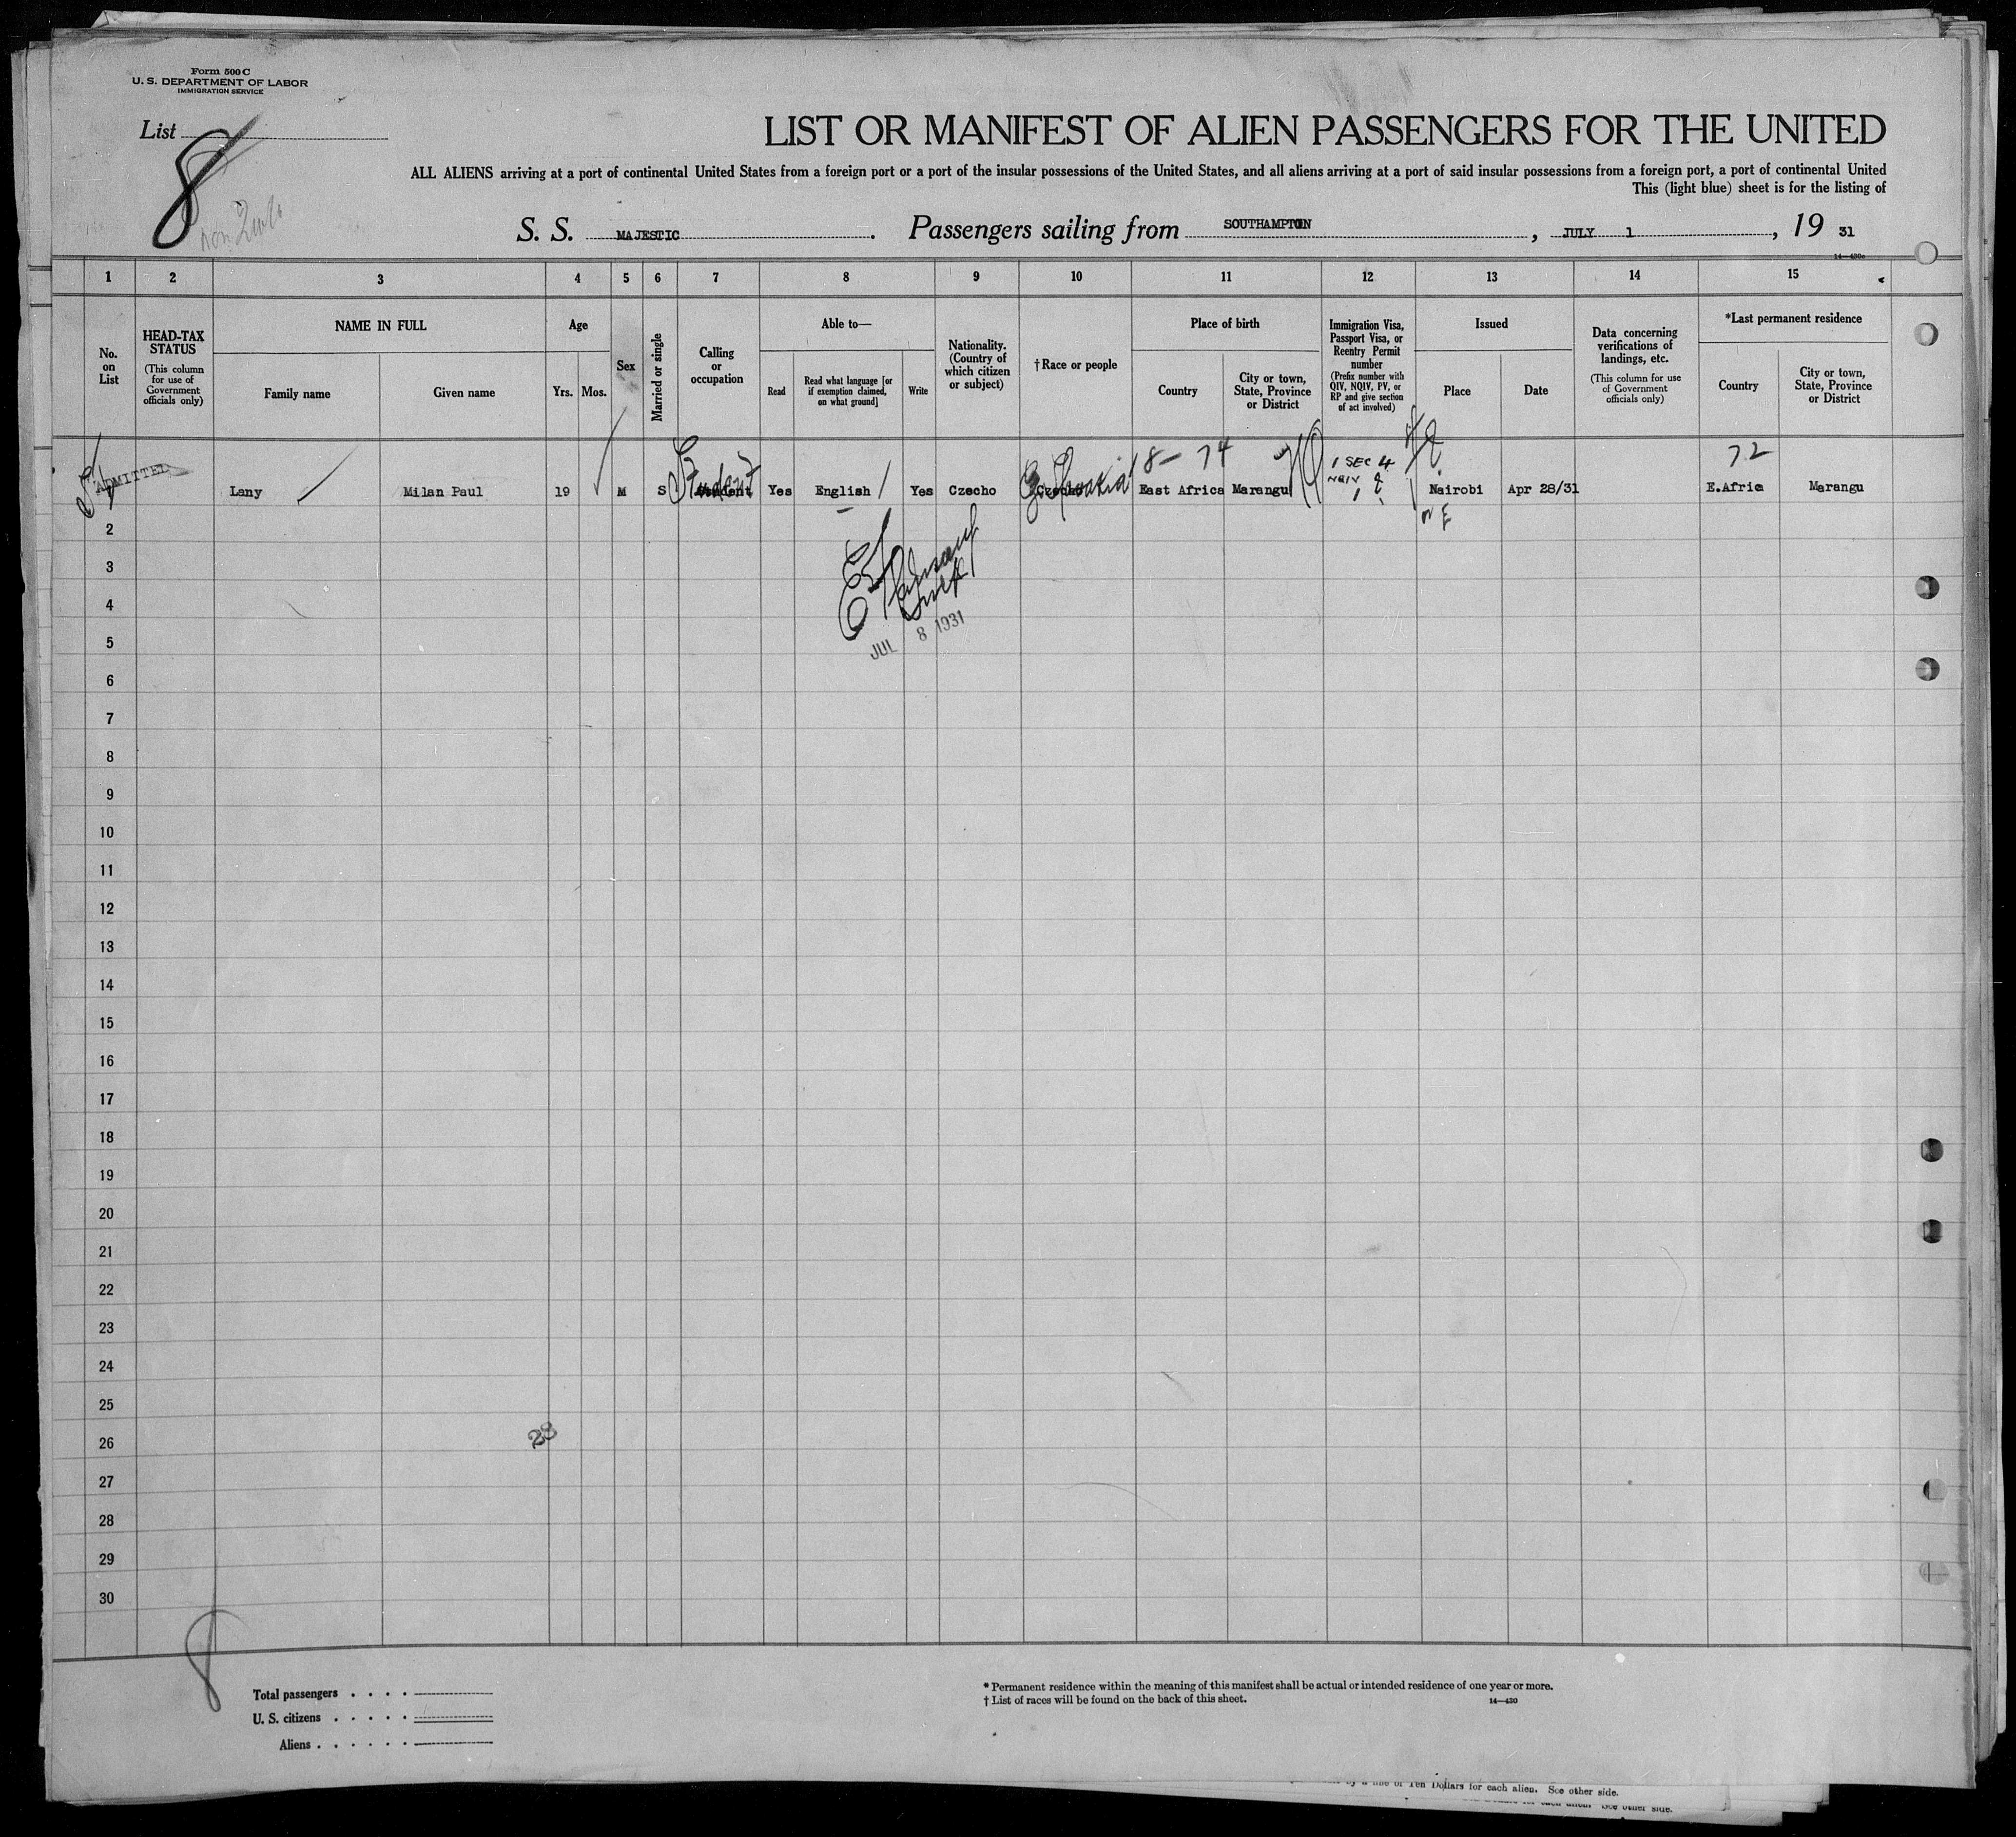 Form 500 C
U. S. DEPARTMENT OF LABOR
IMMIGRATION SERVICE
List 8
LIST OR MANIFEST OF ALIEN PASSENGERS FOR THE UNITED
ALL ALIENS arriving at a port of continental United States from a foreign port or a port of the insular possessions of the United States, and all aliens arriving at a port of said insular possessions from a foreign port, a port of continental United
This (light blue) sheet is for the listing of
S. S. MAJESTIC. Passengers sailing from SOUTHAMPTON, JULY 1, 19 31
14—430c
1 2 3 4 5 6 7 8 9 10 11 12 13 14 15
No. on List
HEAD-TAX STATUS
(This column for use of Government officials only)
NAME IN FULL
Family name
Given name
Age
Yrs. Mos.
Sex
Married or single
Calling or occupation
Able to—
Read
Read what language [or if exemption claimed, on what ground]
Write
Nationality. (Country of which citizen or subject)
†Race or people
Place of birth
Country
City or town, State, Province or District
Immigration Visa, Passport Visa, or Reentry Permit number
(Prefix number with QIV, NQIV, PV, or RP and give section of act involved)
Issued
Place
Date
Data concerning verifications of landings, etc.
(This column for use of Government officials only)
*Last permanent residence
Country
City or town, State, Province or District
8— 74
1 SEC 4
72
ADMITTED Lany Milan Paul 19 M S Student Yes English Yes Czecho East Africa Marangu NQIV Nairobi Apr 28/31 E.Africa Marangu
2
3
4
5
JUL 8 1931
6
7
8
9
10
11
12
13
14
15
16
17
18
19
20
21
22
23
24
25
26
23
27
28
29
30
8
Total passengers . . . .
U. S. citizens . . . . .
Aliens . . . . . .
* Permanent residence within the meaning of this manifest shall be actual or intended residence of one year or more.
† List of races will be found on the back of this sheet.
14—430
of Ten Dollars for each alien. See other side.
See other side.